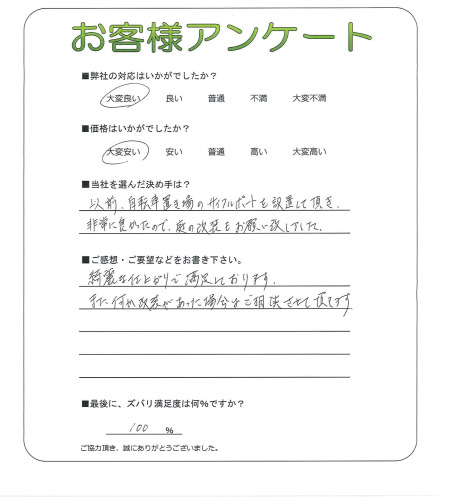 お客様アンケート
■弊社の対応はいかがでしたか？
大変良い 良い 普通 不満 大変不満
■価格はいかがでしたか？
大変安い 安い 普通 高い 大変高い
■当社を選んだ決め手は？
以前、自転車置き場のサイクルポートを設置して頂き、
非常に良かったので、庭の改装もお願い致しました。
■ご感想・ご要望などをお書き下さい。
綺麗な仕上がりで満足しております。
また何か改装があった場合はご相談させて頂きます。
■最後に、ズバリ満足度は何%ですか？
100 %
ご協力頂き、誠にありがとうございました。